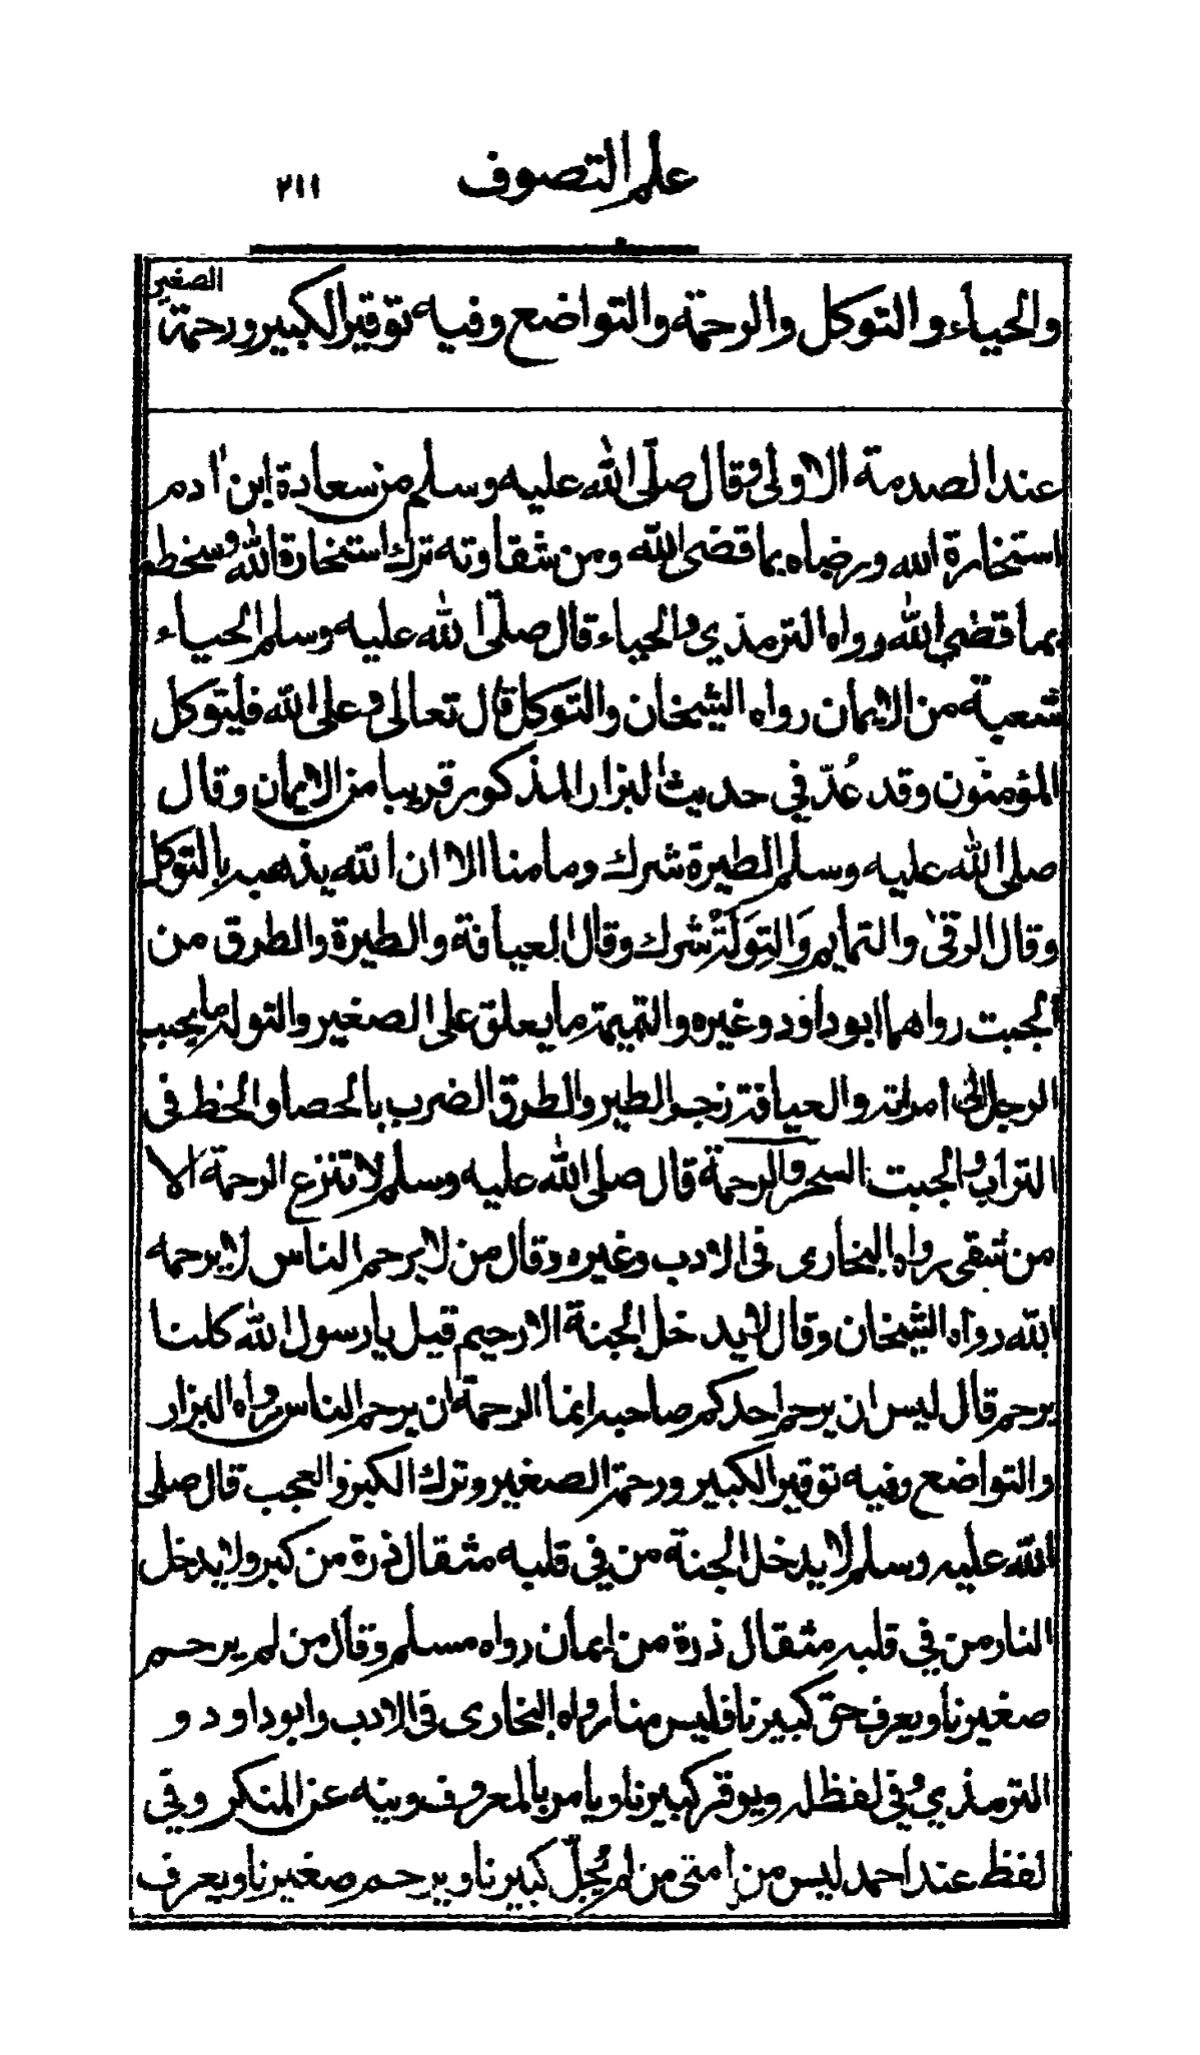 علم التصوف ٢١١
والحياء والتوكل والرحمة والتواضع وفيه توقير الكبير ورحمة الصغير
عند الصدمة الاولى وقال صلى الله عليه وسلم من سعادة ابن ادم
استخارة الله ورضاه بما قضى الله ومن شقاوته ترك استخارة الله وسخطه
بما قضى الله رواه الترمذي والحياء قال صلى الله عليه وسلم الحياء
شعبة من الايمان رواه الشيخان والتوكل قال تعالى وعلى الله فليتوكل
المؤمنون وقد عُدّ في حديث البزار المذكور قريبا من الايمان وقال
صلى الله عليه وسلم الطيرة شرك وما منا الا ان الله يذهبه بالتوكل
وقال الرقى والتمايم وَالتِوَلَةُ شرك وقال العيافة والطيرة والطرق من
الجبت رواهما ابو داؤد وغيره والتميمة ما يعلق على الصغير والتولة ما يحبب
الرجل الى امراته والعيافة زجر الطير والطرق الضرب بالحصا والخط في
التراب والجبت السحر والرحمة قال صلى الله عليه وسلم لا تنزع الرحمة الا
من شقي رواه البخارى فى الادب وغيره وقال من لا يرحم الناس لا يرحمه
الله رواه الشيخان وقال لا يدخل الجنة الا رحيم قيل يا رسول الله كلنا
يرحم قال ليس ان يرحم احدكم صاحبه انما الرحمة ان يرحم الناس رواه البزار
والتواضع وفيه توقير الكبير ورحمة الصغير وترك الكبر والعجب قال صلى
الله عليه وسلم لا يدخل الجنة من في قلبه مثقال ذرة من كبر ولا يدخل
النار من في قلبه مثقال ذرة من إيمان رواه مسلم وقال من لم يرحم
صغيرنا ويعرف حق كبيرنا فليس منا رواه البخارى فى الادب وابو داود و
الترمذي وفي لفظ له ويوقر كبيرنا ويامر بالمعروف وينه عن المنكر وفي
لفظ عند احمد ليس من امتى من لم يُجلّ كبيرنا ويرحم صغيرنا ويعرف